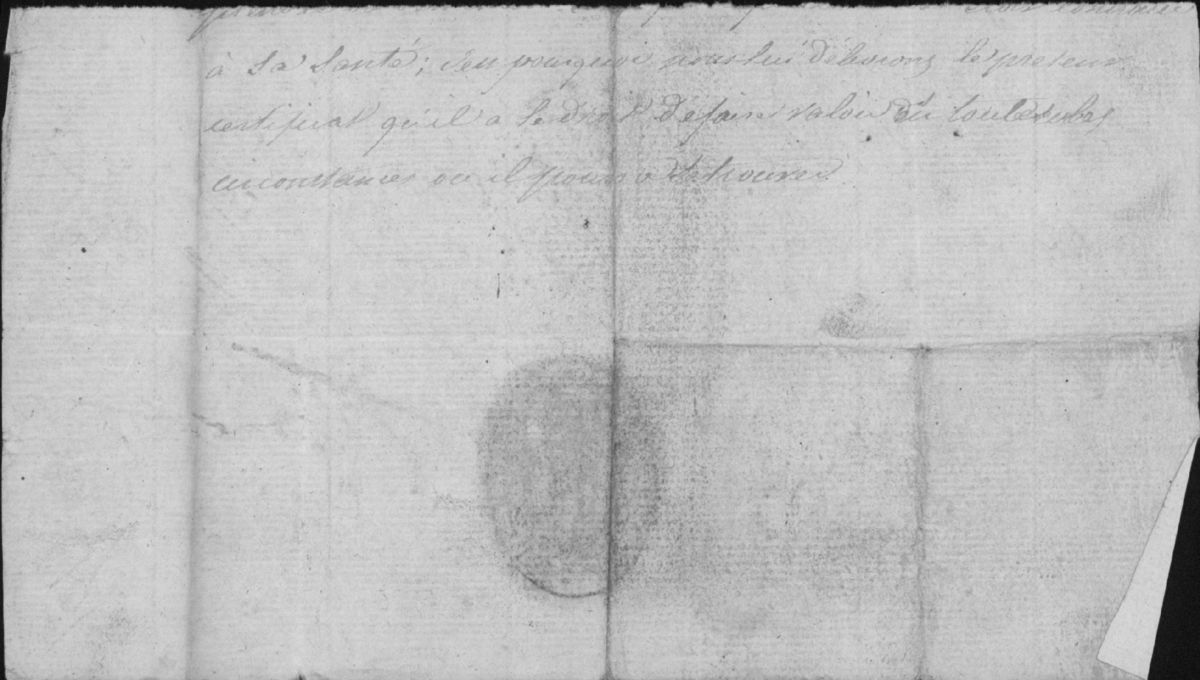 à Sa Santé; c'est pourquoi nous lui délivrons le présent
certificat qu'il a le droit de faire valoir dans toutes les
circonstances où il pourra se trouver.